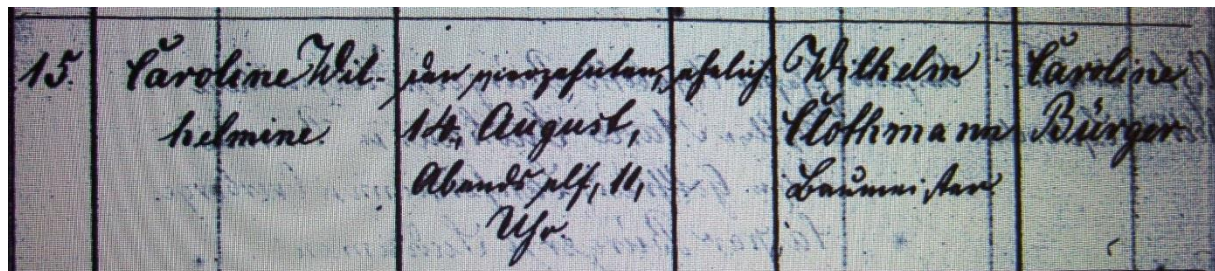 15.
Caroline Wil-
helmine.
den vierzehnten,
14, August,
Abends elf, 11,
Uhr.
ehelich
Wilhelm
Clothmann
Baumeister
Caroline
Bürger